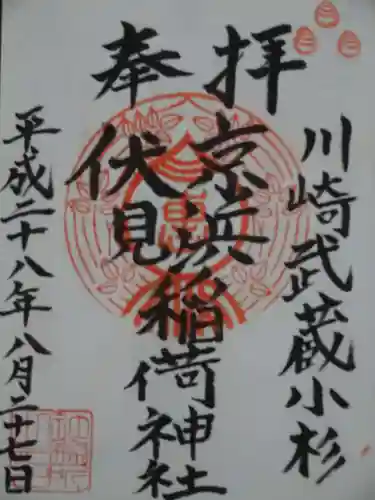 奉拝
川崎武蔵小杉
京浜
伏見
稲荷神社
平成二十八年八月二十七日